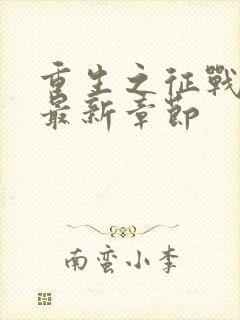 重生之征戰
最新章節
南蛮小李